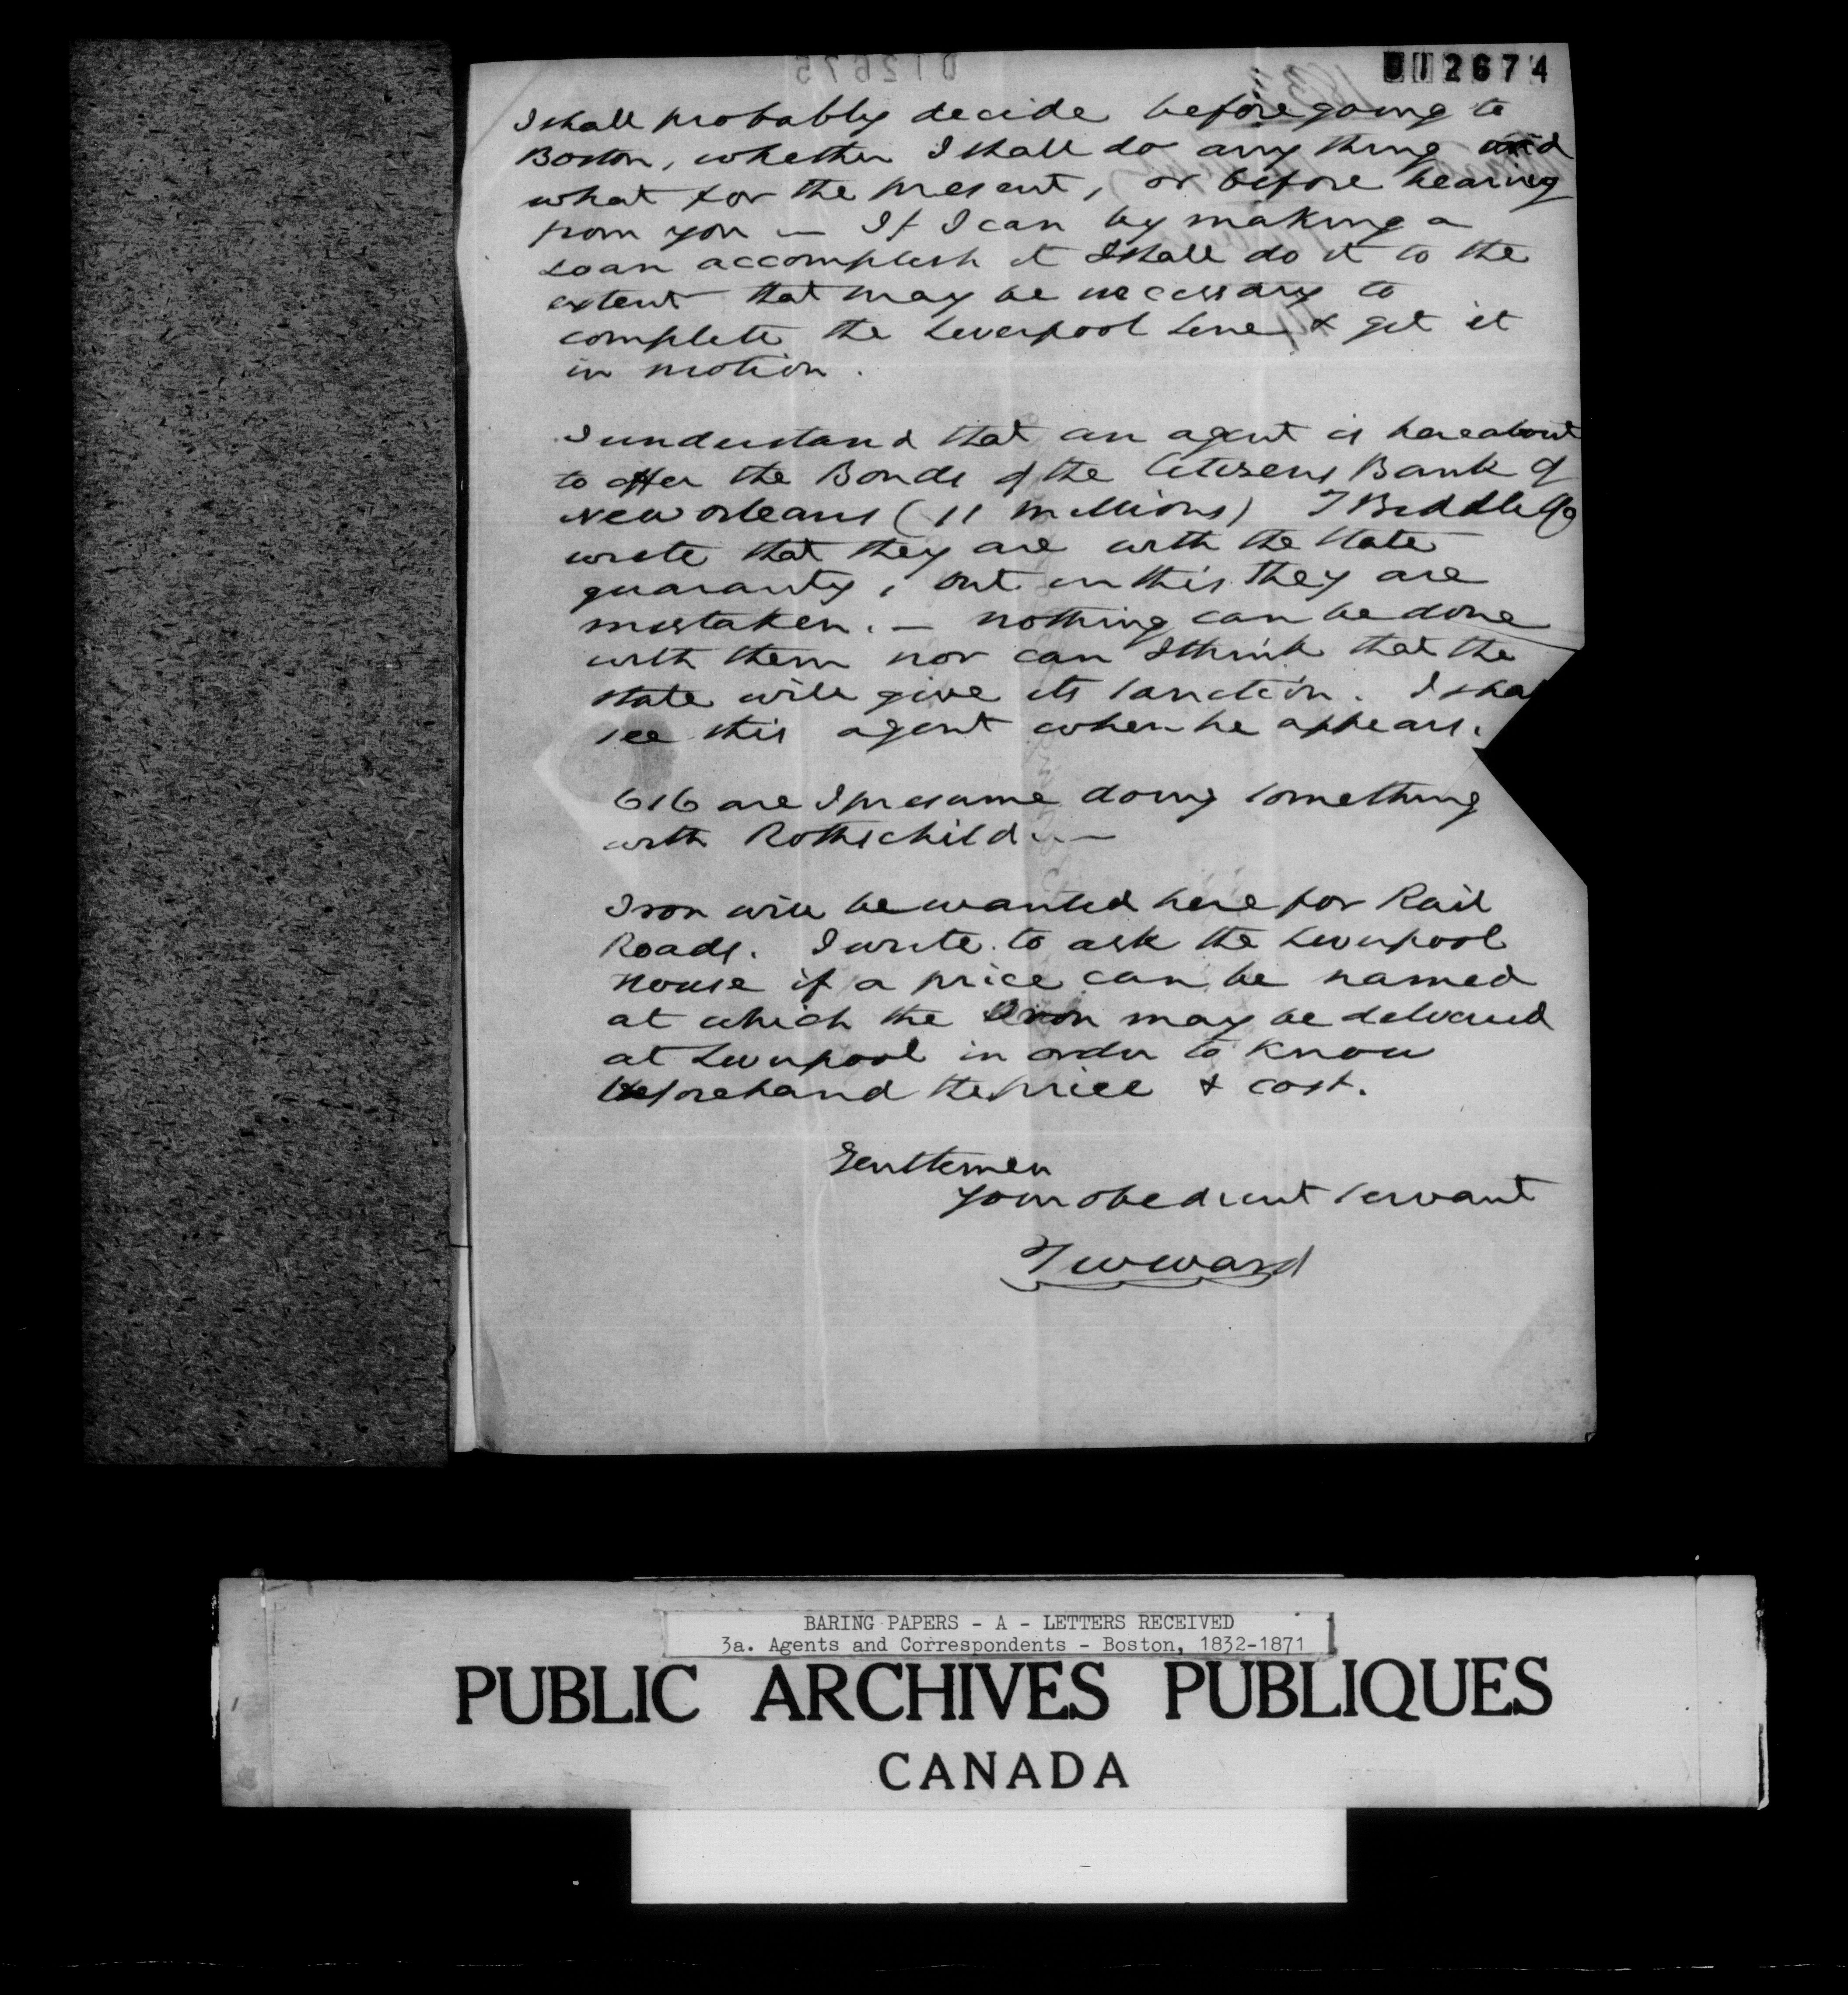 012674
I shall probably decide before going to
Boston, whether I shall do any thing and
what for the present, or before hearing
from you — If I can by making a
Loan accomplish it I shall do it to the
extent that may be necessary to
complete the Liverpool Line & get it
in motion.
I understand that an agent is here about
to offer the Bonds of the Citizens Bank of
New Orleans (11 millions) T Biddle & Co
wrote that they are with the State
guaranty, but in this they are
mistaken. — nothing can be done
with them nor can I think that the
State will give its sanction. I sha
see this agent when he appears.
616 are I presume doing something
with Rothschild. —
Iron will be wanted here for Rail
Roads. I write to ask the Liverpool
House if a price can be named
at which the Iron may be delivered
at Liverpool in order to know
beforehand the price & cost.
Gentlemen
Your obedient servant
T W Ward
BARING PAPERS - A - LETTERS RECEIVED
3a. Agents and Correspondents - Boston, 1832-1871
PUBLIC ARCHIVES PUBLIQUES
CANADA